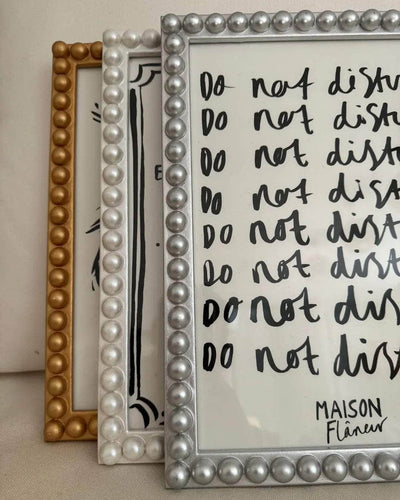 Do not distu
Do not distu
Do not distu
Do not distu
Do not dist
Do not dist
Do not dist
Do not dist
MAISON
Flâneur